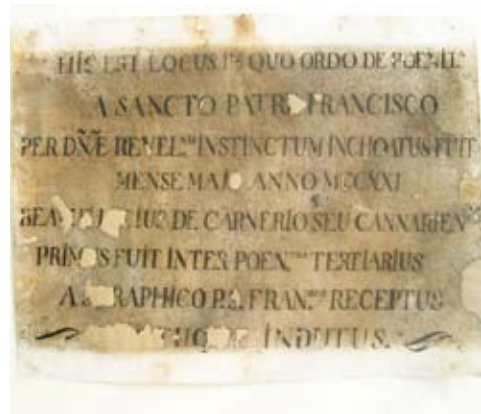 HIC EST LOCUS IN QUO ORDO DE POENIT.
A SANCTO PATRE FRANCISCO
PER DÑE REVEL.NE INSTINCTUM INCHOATUS FUIT
MENSE MAJO ANNO MCCXXI
DE CARNERIO SEU CANNARIEN
FUIT INTER POEN. TERTIARIUS
A P.S. FRAN. RECEPTUS
INDUTUS.